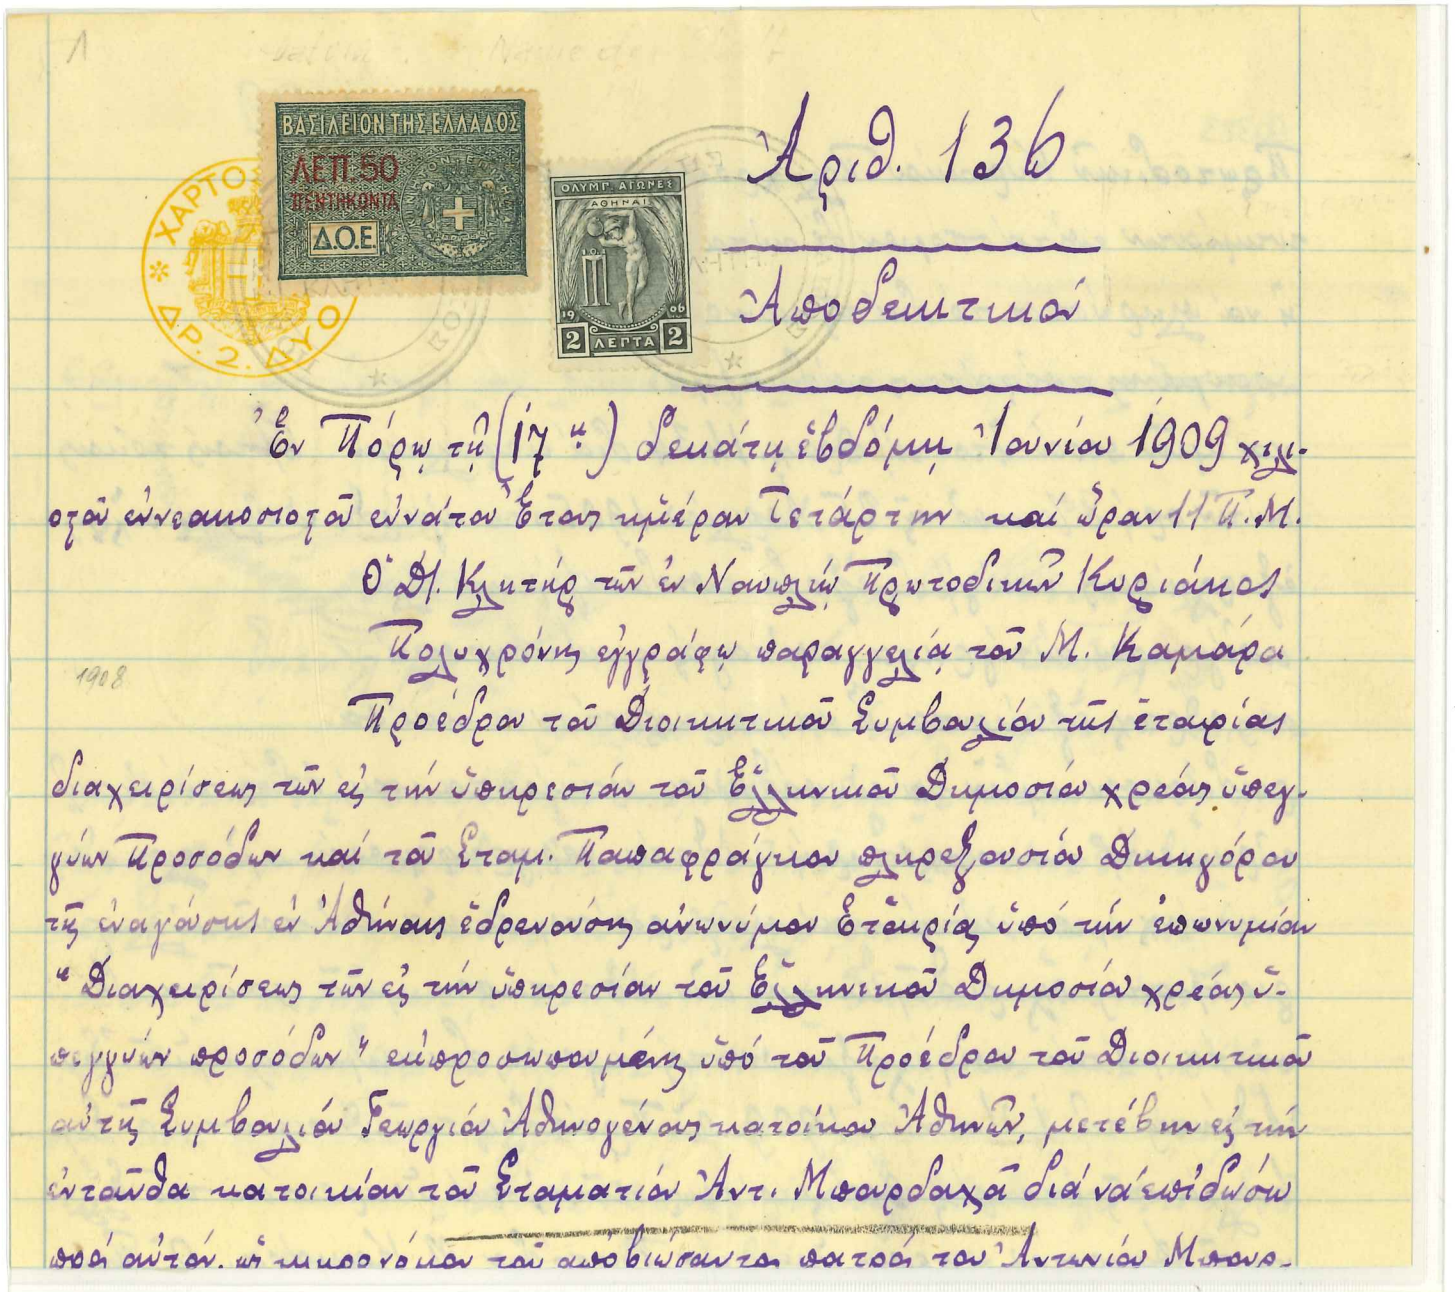 1
ΒΑΣΙΛΕΙΟΝ ΤΗΣ ΕΛΛΑΔΟΣ
ΛΕΠ. 50
ΠΕΝΤΗΚΟΝΤΑ
Δ.Ο.Ε.
ΧΑΡΤΟ
ΔΡ. 2. ΔΥΟ
ΟΛΥΜΠ. ΑΓΩΝΕΣ
ΑΘΗΝΑΙ
1906
2 ΛΕΠΤΑ 2
Ἀριθ. 136
Ἀποδεικτικόν
Ἐν Πόρῳ τῇ (17ῃ) δεκάτῃ ἑβδόμῃ Ἰουνίου 1909 χιλι-
οστοῦ ἐννεακοσιοστοῦ ἐννάτου Ἔτους ἡμέραν Τετάρτην καί ὥραν 11 Π.Μ.
Ὁ Δ. Κλητήρ τῶν ἐν Ναυπλίῳ Πρωτοδικῶν Κυριάκος
Πολυχρόνης ἐγγράφῳ παραγγελίᾳ τοῦ Μ. Καμάρα
1908
Προέδρου τοῦ Διοικητικοῦ Συμβουλίου τῆς ἑταιρίας
διαχειρίσεως τῶν εἰς τήν ὑπηρεσίαν τοῦ Ἑλληνικοῦ Δημοσίου χρέους ὑπεγ-
γύων Προσόδων καί τοῦ Σταμ. Παπαφράγκου πληρεξουσίου Δικηγόρου
τῆς ἐναγούσης ἐν Ἀθήναις ἑδρευούσης ἀνωνύμου Ἑταιρίας ὑπό τήν ἐπωνυμίαν
"Διαχειρίσεως τῶν εἰς τήν ὑπηρεσίαν τοῦ Ἑλληνικοῦ Δημοσίου χρέους ὑ-
πεγγύων προσόδων" ἐκπροσωπουμένης ὑπό τοῦ Προέδρου τοῦ Διοικητικοῦ
αὐτῆς Συμβουλίου Γεωργίου Ἀθηνογένους κατοίκου Ἀθηνῶν, μετέβην εἰς τήν
ἐνταῦθα κατοικίαν τοῦ Σταματίου Ἀντ. Μπουρδαχᾶ διά νά ἐπιδώσω
πρός αὐτόν ὡς κληρονόμον τοῦ ἀποβιώσαντος πατρός του Ἀντωνίου Μπουρ-